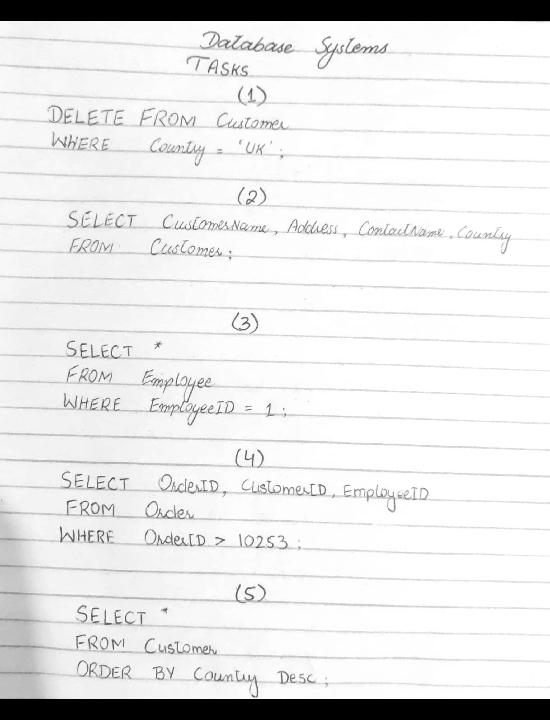 Database Systems
TASKS
(1)
DELETE FROM Customer
WHERE Country = 'UK';
(2)
SELECT CustomerName, Address, ContactName, Country
FROM Customer;
(3)
SELECT *
FROM Employee
WHERE EmployeeID = 1;
(4)
SELECT OrderID, CustomerID, EmployeeID
FROM Order
WHERE OrderID > 10253;
(5)
SELECT *
FROM Customer
ORDER BY Country Desc;